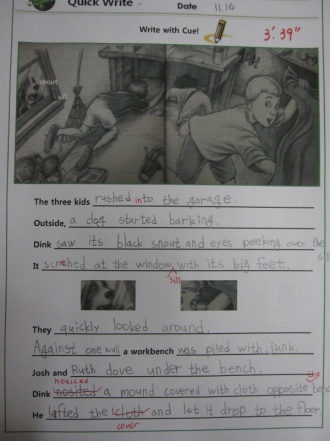 Quick Write
Date 11.16
Write with Cue!
3'. 39"
snout
sill
The three kids rushed into the garage.
Outside, a dog started barking.
Dink saw its black snout and eyes peeking over the
sill
It scratched at the window with its big feet.
sill
They quickly looked around.
Against one wall a workbench was piled with junk.
Josh and Ruth dove under the bench.
noticed the
Dink nosited a mound covered with cloth opposite
He lifted the cloth and let it drop to the floor.
cover